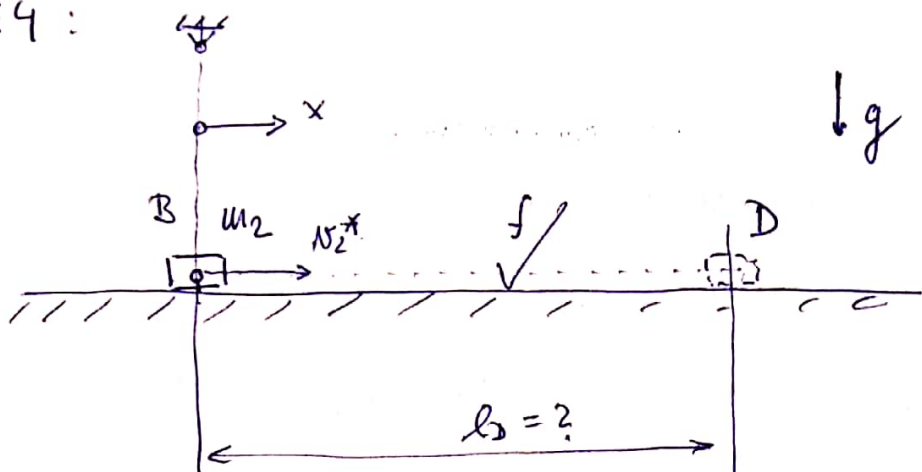 4 :
x
g
B m₂ v₂* f D
l_D = ?